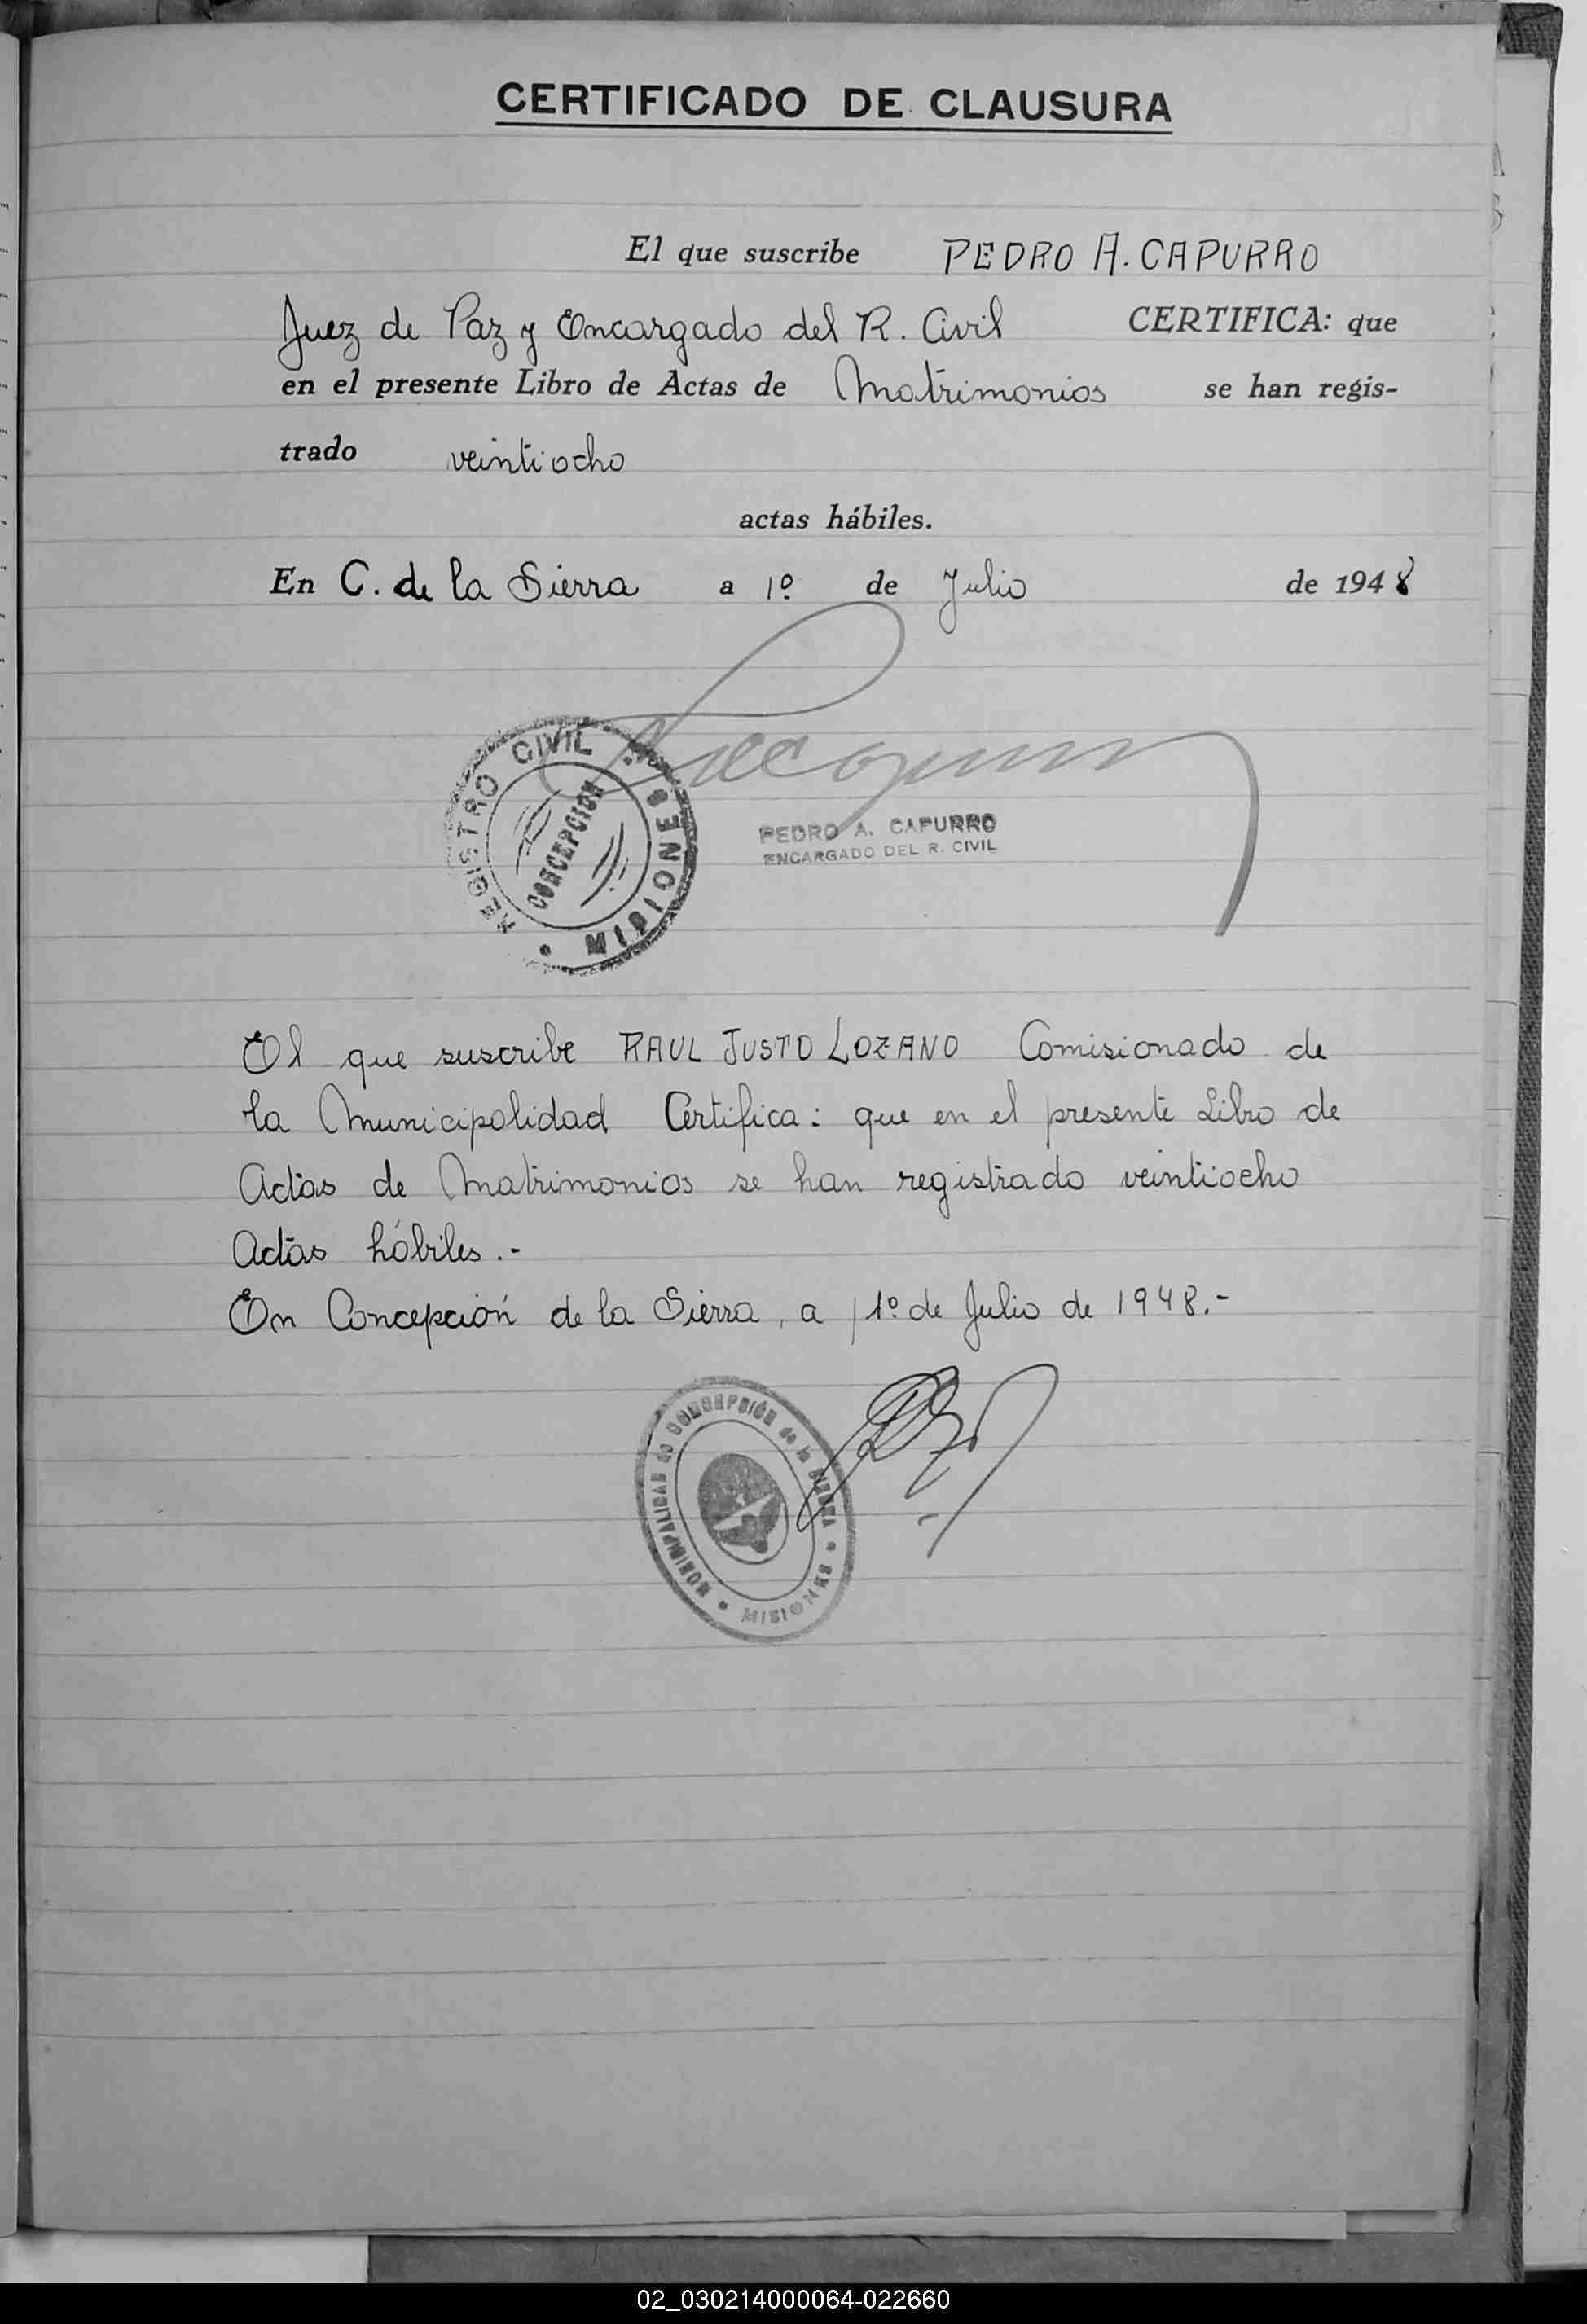 CERTIFICADO DE CLAUSURA
El que suscribe PEDRO A. CAPURRO
Juez de Paz y Encargado del R. Civil CERTIFICA: que
en el presente Libro de Actas de Matrimonios se han regis-
trado veintiocho
actas hábiles.
En C. de la Sierra a 1º de Julio de 1948
REGISTRO CIVIL
CONCEPCION
MISIONES
PEDRO A. CAPURRO
ENCARGADO DEL R. CIVIL
El que suscribe RAUL JUSTO LOZANO Comisionado de
la Municipalidad Certifica: que en el presente Libro de
Actas de Matrimonios se han registrado veintiocho
Actas hábiles.-
En Concepción de la Sierra, a 1º de Julio de 1948.-
MUNICIPALIDAD de CONCEPCIÓN de la SIERRA
MISIONES
02_030214000064-022660